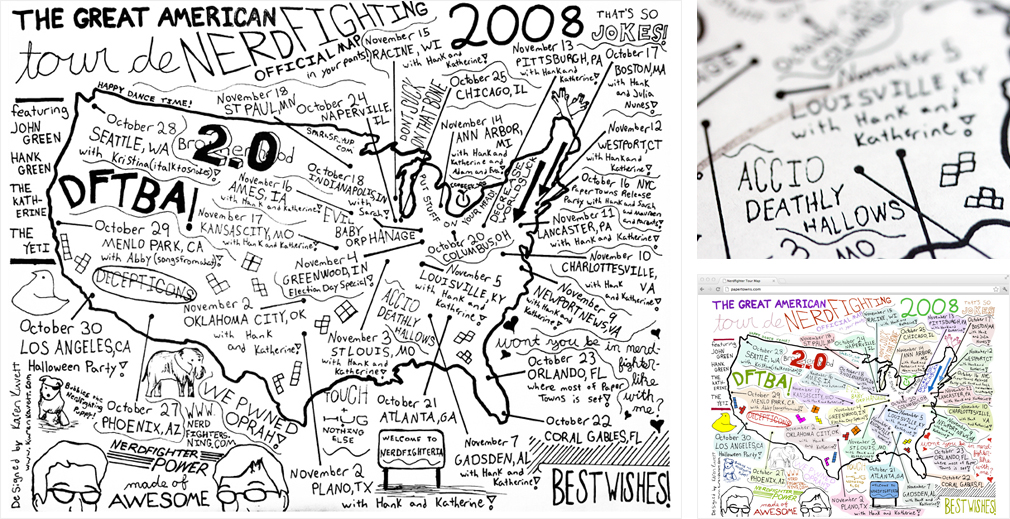 THE GREAT AMERICAN
tour de NERDFIGHTING
2008
OFFICIAL MAP
in your pants!
THAT'S SO
JOKES!
November 15
RACINE, WI
with Hank and
Katherine!
November 13
PITTSBURGH, PA
with Hank and
Katherine!
October 17
BOSTON, MA
with Hank
and
Julia
Nunes!
HAPPY DANCE TIME!
November 18
ST PAUL, MN
October 24
NAPERVILLE,
IL
October 25
CHICAGO, IL
featuring
JOHN
GREEN
HANK
GREEN
THE
KATH-
ERINE
THE
YETI
October 28
SEATTLE, WA
with Kristina(italktosnakes)!
Brotherhood
2.0
DON'T SUCK
ON THAT BONE
November 14
ANN ARBOR,
MI
with Hank and
Katherine and
November 12
WESTPORT, CT
with Hank and
Katherine!
DFTBA!
November 16
AMES, IA
with Hank and Katherine!
October 18
INDIANAPOLIS, IN
with
Sarah!
PUT STUFF
ON
YOUR HEAD!
DECREASE
WORLDSUCK
October 16 NYC
Paper Towns Release
Party with Hank and
November 17
KANSAS CITY, MO
with Hank and Katherine!
EVIL
BABY
ORPHANAGE
November 11
LANCASTER, PA
with Hank and Katherine!
October 29
MENLO PARK, CA
with Abby(songsfromabed)!
October 20
COLUMBUS, OH
November 10
CHARLOTTESVILLE,
VA
with Hank
and
Katherine!
November 4
GREENWOOD, IN
Election Day Special!
November 5
LOUISVILLE, KY
with Hank
and
Katherine!
DECEPTICONS
ACCIO
DEATHLY
HALLOWS
November 9
NEWPORT NEWS, VA
with Hank and Katherine!
November 2
OKLAHOMA CITY, OK
with Hank
and Katherine!
October 30
LOS ANGELES, CA
Halloween Party!
November 3
ST LOUIS, MO
with Hank and
Katherine!
wont you be in nerd-
fighter-
like
with
me?
October 23
ORLANDO, FL
where most of Paper
Towns is set!
Bubbles the
Nerdfighting
Puppy!
WE PWNED
OPRAH!
TOUCH
+
HUG
NOTHING
ELSE
October 21
ATLANTA, GA
October 27
PHOENIX, AZ
WWW.
NERD
FIGHTERS.
NING.COM
October 22
CORAL GABLES, FL
WELCOME TO
NERDFIGHTERIA
November 7
GADSDEN, AL
with Hank and
Katherine!
NERDFIGHTER
POWER
made of
AWESOME
November 2
PLANO, TX
with Hank and Katherine!
BEST WISHES!
Designed by Karen Kavett
www.karenkavett.com
November 5
LOUISVILLE, KY
with Hank and
Katherine!
ACCIO
DEATHLY
HALLOWS
3
MO
Nerdfighter Tour Map
THE GREAT AMERICAN
tour de NERDFIGHTING
2008
THAT'S SO
DFTBA!
2.0
October 30
LOS ANGELES, CA
Halloween Party!
October 27
PHOENIX, AZ
October 21
ATLANTA, GA
October 22
CORAL GABLES, FL
November 7
GADSDEN, AL
November 2
PLANO, TX
made of
AWESOME
BEST WISHES!